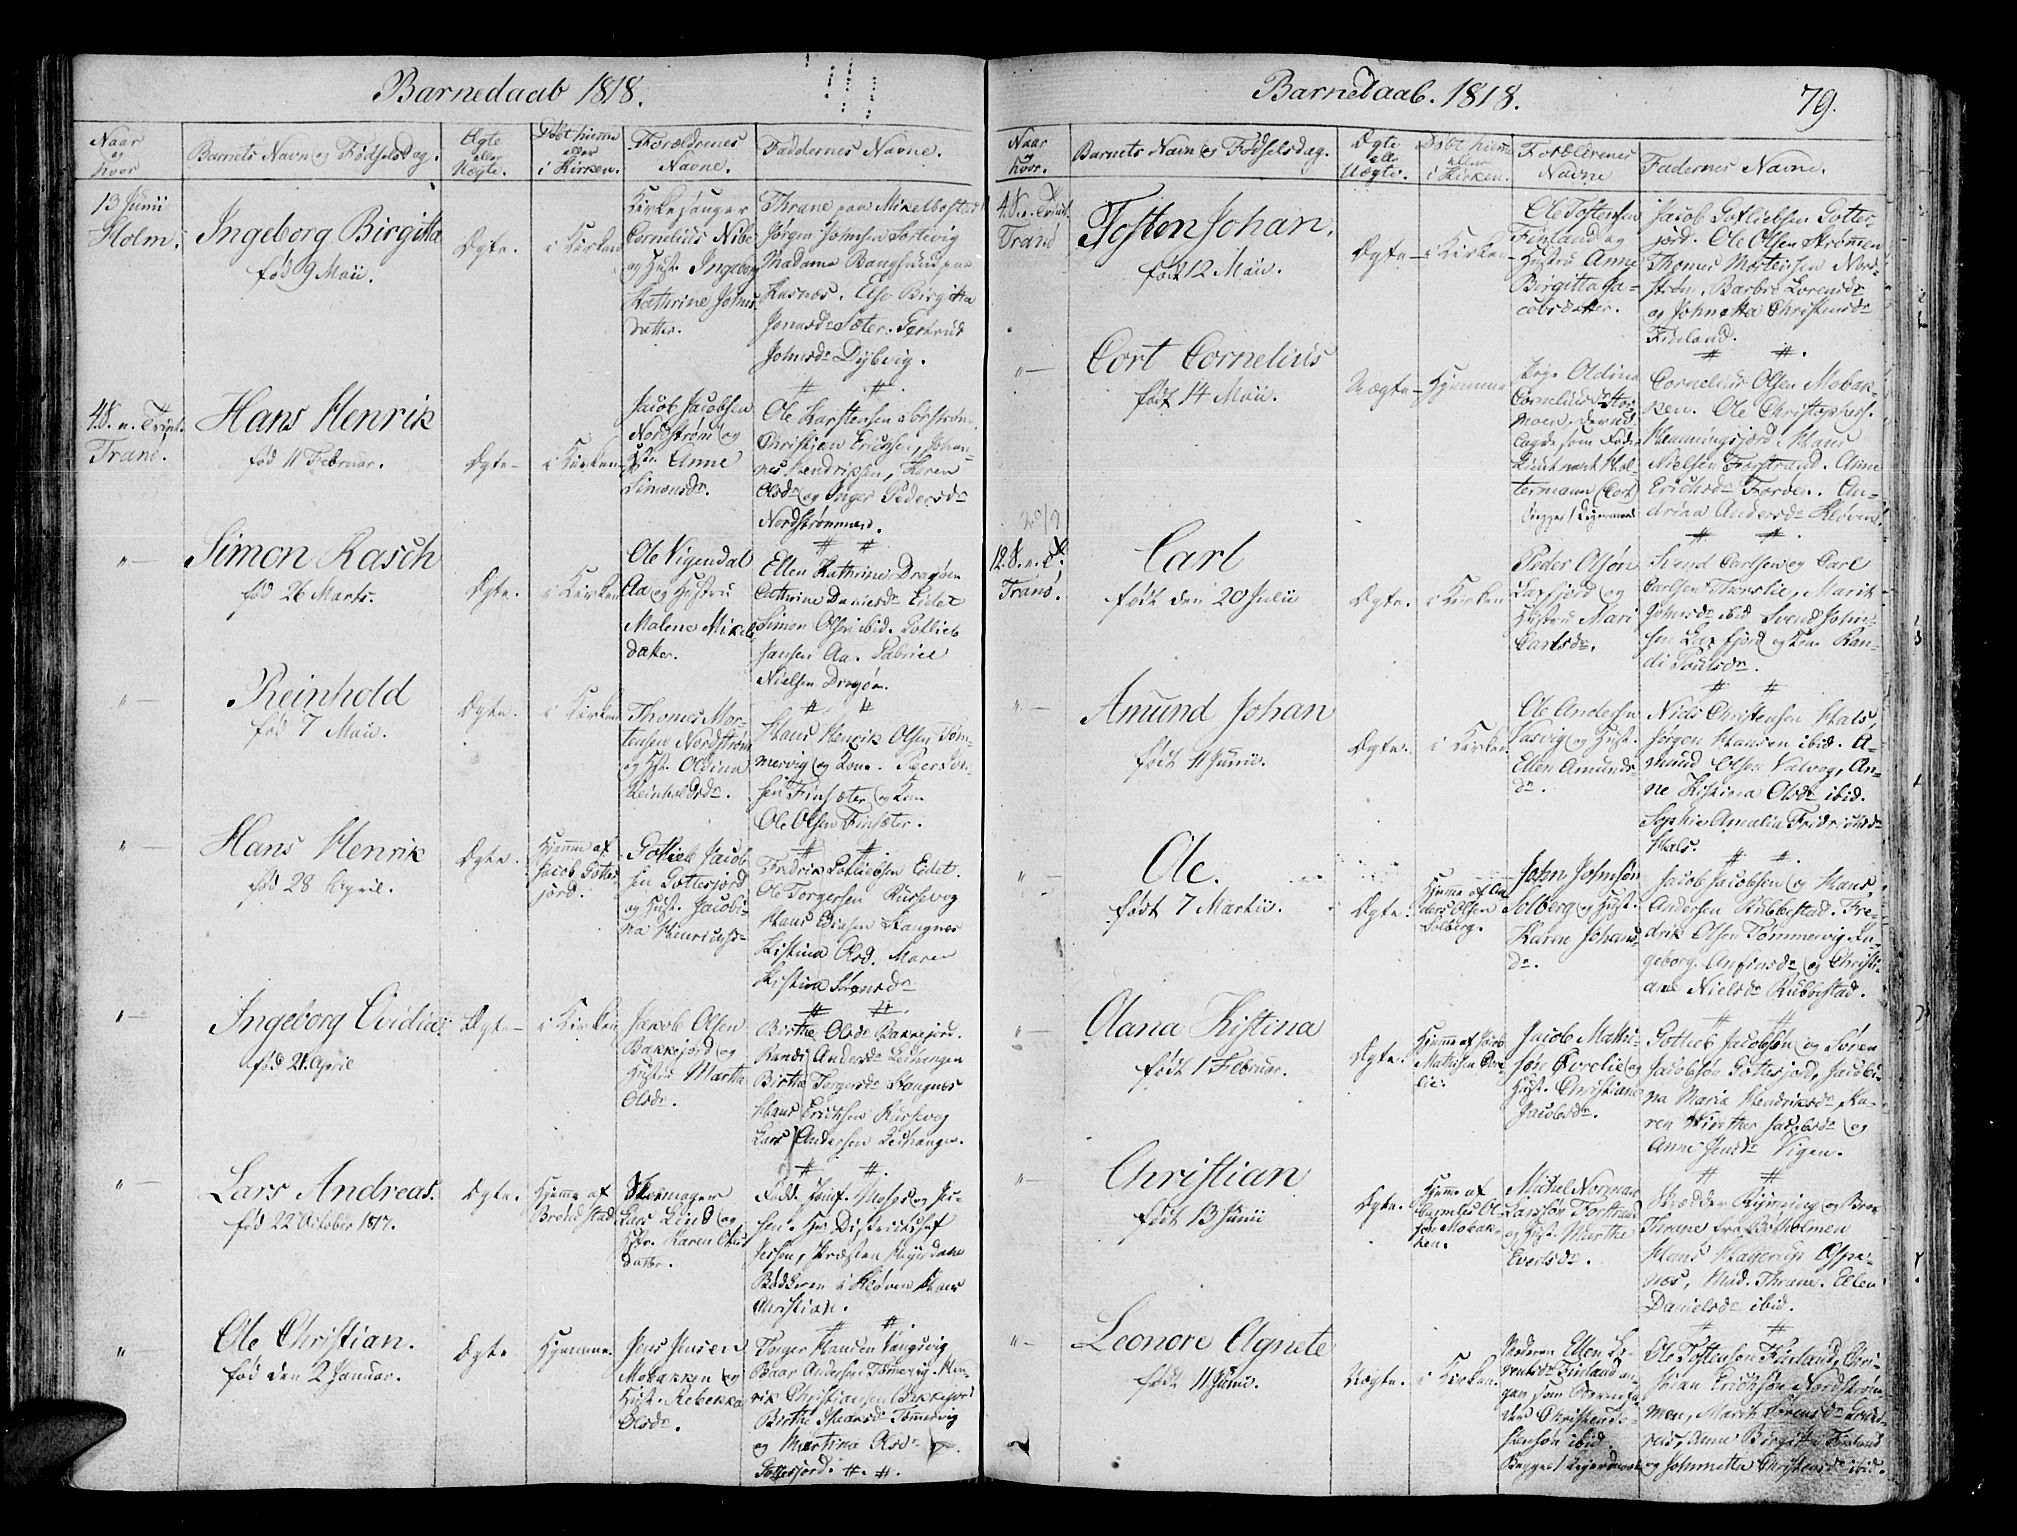 Barnedaab 1818.
Naar og hvor
Barnets Navn og Fødselsdag.
Ægte eller Uægte.
Døbt hiemme eller i Kirken.
Forældrenes Navne.
Faddernes Navne.
13 Junii
Holm.
Ingeborg Birgitta
fød 9 Maii.
Ægte.
i Kirken
Kirkesanger
Cornelius Nibe
og Hust. Ingeborg
Kathrine Johns
datter.
Thrane paa Mikelbostad
Jørgen Johnsen Sortevig
Madame Bangsund paa
Kasnæs. Else Birgitta
Jonasdr Sæter. Gertrud
Johnsdr Dybvig.
4 S. n. Trint.
Tranø.
Hans Henrik
fød 11 Februar.
Ægte
i Kirken
Jacob Jacobsen
Nordstrøm og
Anne
Simonsdr.
Ole Karstensen
Christien Erichsen, Johan-
nes Hendrichsen, Karen
Olsdr og Inger Pedersdr
Nordstrømmen.
Simon Rasch
fød 26 Marts.
Ægte.
i Kirken
Ole Vigendal
Aa og Hustru
Malene Mikels
datter.
Ellen Kathrine Dragøen
Cathrine Danielsdr Eidet
Simon Olsen ibid. Gotlieb
Jansen Aa. Gabriel
Nielsen Dragøen.
Reinhold
fød 7 Maii.
Ægte.
i Kirken
Thomes Mor-
tensen Nordstrøm
og Hst. Oldina
Reinholdsdr.
Hans Henrik Olsen Tøm-
mervig og Kone.
sen Finsæter og Kon
Ole Olsen Finsæter.
Hans Henrik
fød 28 April.
Ægte.
Hjemme af
Jacob Gotte-
jord.
Gotlieb Jacob
sen Gottesjord
og Hust. Jacobi-
na Henrichsdr
Fredrik Gotliebsen Eidet.
Ole Torgersen Russevog
Hans Edissen Stangnes
Kistina Olsd. Maren
Kistina Sørensdr
Ingeborg Ovidia
fød 21 April
Ægte
i Kirken
Jacob Olsen
Bakkejord og
Hustru Marthe
Olsdr.
Birthe Olsdr Bakkejord.
Randi Andersdr Leikangen
Birthe Torgersdr Stangnes
Hans Erichsen Russevog
Lars Andersen Leikangen.
Lars Andreas.
fød 22 October 1817.
Ægte.
Hjemme af
Brøndstad
Skomager
Lars Lind og
Hstr. Karen Ols
datter.
Distrikts
Præsten Heyerdahl
Bødkeren i Kløven Hans
Christian.
Ole Christian.
fød den 2 Januar.
Ægte
Hjemme.
Jens Jensen
Mobakken og
Hust. Rebekka
Olsdr.
Torger Hansen Vangsvig
Baar Andersen Tømervig. Hen-
rik Christiansen Bakkejord
Birthe Tømervig
og Martina Olsdr
Gottesjord.
Barnedaab. 1818.
79.
Naar og hvor.
Barnets Navn og Fødselsdag.
Ægte eller Uægte.
Døbt hiemme eller i Kirken.
Forældrenes Navne
Faddernes Navne.
4 S. n. Trint.
Tranø
Tosten Johan.
født 12 Maii.
Ægte
i Kirken
Ole Tostensen
Finland og
Hustru Anne
Birgitta Ja-
cobsdatter.
Jacob Gotliebsen Gotte-
jord. Ole Olsen Strømmen
Thomes Mortensen Nord-
strøm. Barbro Lorensdr
og Johnetta Christensdr
Finland.
Cort Cornelius
født 14 Maii.
Uægte
Hjemme
Pige Oldine
Corneliusdr
moen, der ud-
lagde som Fader
Lieutnant Hol-
termann (Cort)
Begges 1 Leiermaal
Cornelius Olsen Mobak-
ken. Ole Christophers.
Henningsjord. Hans
Nielsen Forstrand. Anne
Erichsdr Forden. An-
drina Andersdr Kløven.
20/9
12. S. n. T.
Tranø.
Carl
født den 20 Julii
Ægte.
i Kirken
Peder Olsøn
Laxfjord og
Hustru Mari
Carlsdr.
Svend Carlsen og Carl
Carlsen Thorslie, Marit
Johnsdr ibid Svend John-
sen Laxfjord og Kone Ran-
di Poulsdr.
Amund Johan
født 11 Junii.
Ægte.
i Kirken.
Ole Andersen
Vasvig og Hust.
Ellen Amunds-
dr.
Niels Christensen Hals,
Jørgen Hansen ibid. A-
mund Olsen Valvog, An-
ne Kistina Olsdr ibid.
Sophie Amalia Fridrichsdr
Hals.
Ole.
født 7 Martii.
Ægte.
Hjemme af An
ders Olsen
Solberg.
John Johnsøn
Solberg og Hust.
Karen Johans
dr.
Jacob Jacobsen og Hans
Andersen Rubbestad. Fre-
drik Olsen Tømmervig. In-
geborg Anfinsdr og Christi-
ane Nielsdr Rubbestad.
Olana Kistina
født 1 Februar.
Ægte.
Hjemme af Jacob
Mathisen Øvre-
lie.
Jacob Mathi-
søn Øvrelie og
Hust. Christiane
Jacobsdr.
Gotlieb Jacobsøn og Søren
Jacobsøn Gottesjord, Jacobi-
na Maria Hendriksdr, Ka-
ren Winther Jacobsdr og
Anne Jensdr Vigen.
Christian
født 13 Junii
Ægte.
Hjemme af
Cornelius Ol-
sen Mobak-
ken.
Mikel Norman
Larssøn Forstrand
og Hust. Marthe
Evertsdr.
Skrædder
Thrane fra Botholmen
Hans Hagerup Espe-
næs, Mad. Thrane. Ellen
Danielsdr ibid.
Leonore Agnete
født 11 Junii.
Uægte.
i Kirken.
Moderen Ellen Lo-
rentsdr Finland an-
gav som Barnefa-
der Christen
ibid.
Begges 1 Leiermaal
Ole Tostensen Finland,
Erichsøn Nordstrøm-
men, Marit Sørensdr
Anne Birgitte Finland
og Johnnetta Christensdr ibid.